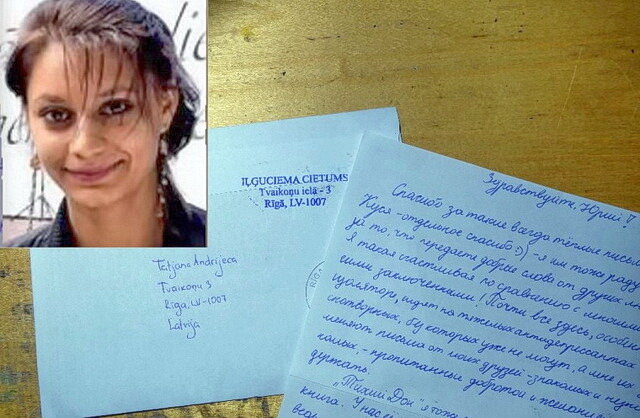 IĻĢUCIEMA CIETUMS
Tvaikoņu ielā - 3
Rīgā, LV-1007
Tatjana Andrijeca
Tvaikoņu 3
Rīga, LV-1007
Latvija
Здравствуйте, Юрий!
Спасибо за такие всегда тёплые письма
Кусе - отдельное спасибо :) - я им тоже
за то, что передаете добрые слова от других
Я такая счастливая по сравнению с многими
заключенными! Почти все здесь, особен
изолятор, сидят на тяжелых антидепрессантах
снотворных, без которых уже не могут, а мне их
меняют письма от моих друзей - знакомых и
- пропитанные добротой и
держать.
"Тихий Дон"
книга. У нас